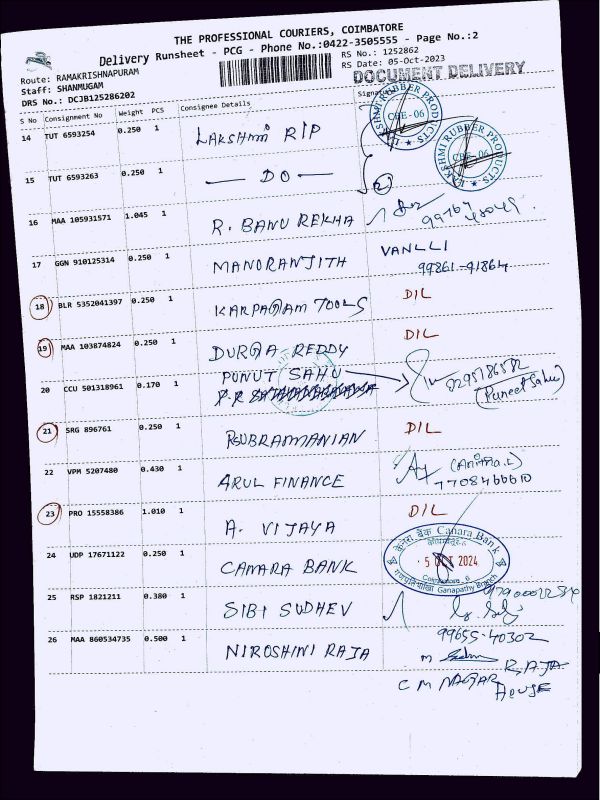 THE PROFESSIONAL COURIERS, COIMBATORE
Delivery Runsheet - PCG - Phone No.:0422-3505555 - Page No.:2
Route: RAMAKRISHNAPURAM
Staff: SHANMUGAM
DRS No.: DCJB125286202
RS No.: 1252862
RS Date: 05-Oct-2023
DOCUMENT DELIVERY
S No Consignment No Weight PCS Consignee Details Signature
14 TUT 6593254 0.250 1 LAKSHMI RIP
LAKSHMI RUBBER PRODUCTS CBE-06
15 TUT 6593263 0.250 1 — DO — 2
LAKSHMI RUBBER PRODUCTS CBE-06
16 MAA 105931571 1.045 1 R. BANU REKHA
17 GGN 910125314 0.250 1 MANORANJITH VANLLI
99861-91864
18 BLR 5352041397 0.250 1 KARPAGAM TOOLS DIL
19 MAA 103874824 0.250 1 DURGA REDDY DIL
PUNUT SAHU
20 CCU 501318961 0.170 1
(Puneet Sahu)
21 SRG 896761 0.250 1 RSUBRAMANIAN DIL
22 VPM 5207480 0.430 1 ARUL FINANCE
23 PRO 15558386 1.010 1 A. VIJAYA DIL
24 UDP 17671122 0.250 1 CANARA BANK
केनरा बैंक Canara Bank
5 OCT 2024
Coimbatore - 6
Ganapathy Branch
25 RSP 1821211 0.380 1 SIBI SUDHEV
99655-40302
26 MAA 860534735 0.500 1 NIROSHINI RAJA
C M NAGAR RAJA
HOUSE